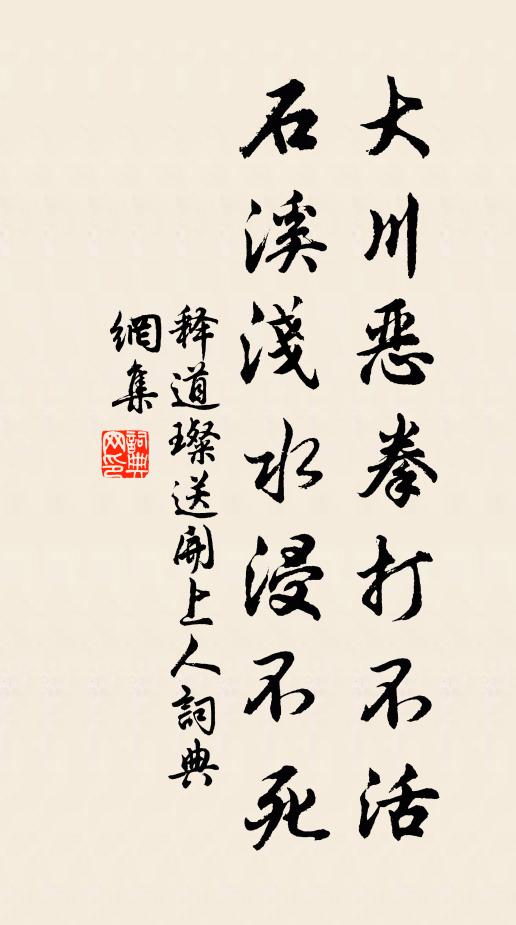 大川恶拳打不活
石溪淺水浸不死
释道璨送開上人詞典
網集
詞典
网印